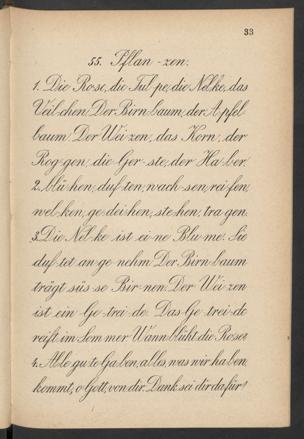 33
55. Pflan-zen.
1. Die Rose, die Tul-pe, die Nel-ke, das
Veil-chen. Der Birn-baum, der Apfel-
baum. Der Wei-zen, das Korn, der
Rog-gen, die Ger-ste, der Ha-ber.
2. blü-hen, duf-ten, wach-sen, rei-fen,
wel-ken, ge-dei-hen, ste-hen, tra-gen.
3. Die Nel-ke ist ei-ne Blu-me. Sie
duf-tet an-ge-nehm. Der Birn-baum
trägt süs-se Bir-nen. Der Wei-zen
ist ein Ge-trei-de. Das Ge-trei-de
reift im Som-mer. Wann blüht die Rose?
4. Alle gu-te Ga-ben, alles, was wir ha-ben,
kommt, o Gott, von dir. Dank sei dir dafür!